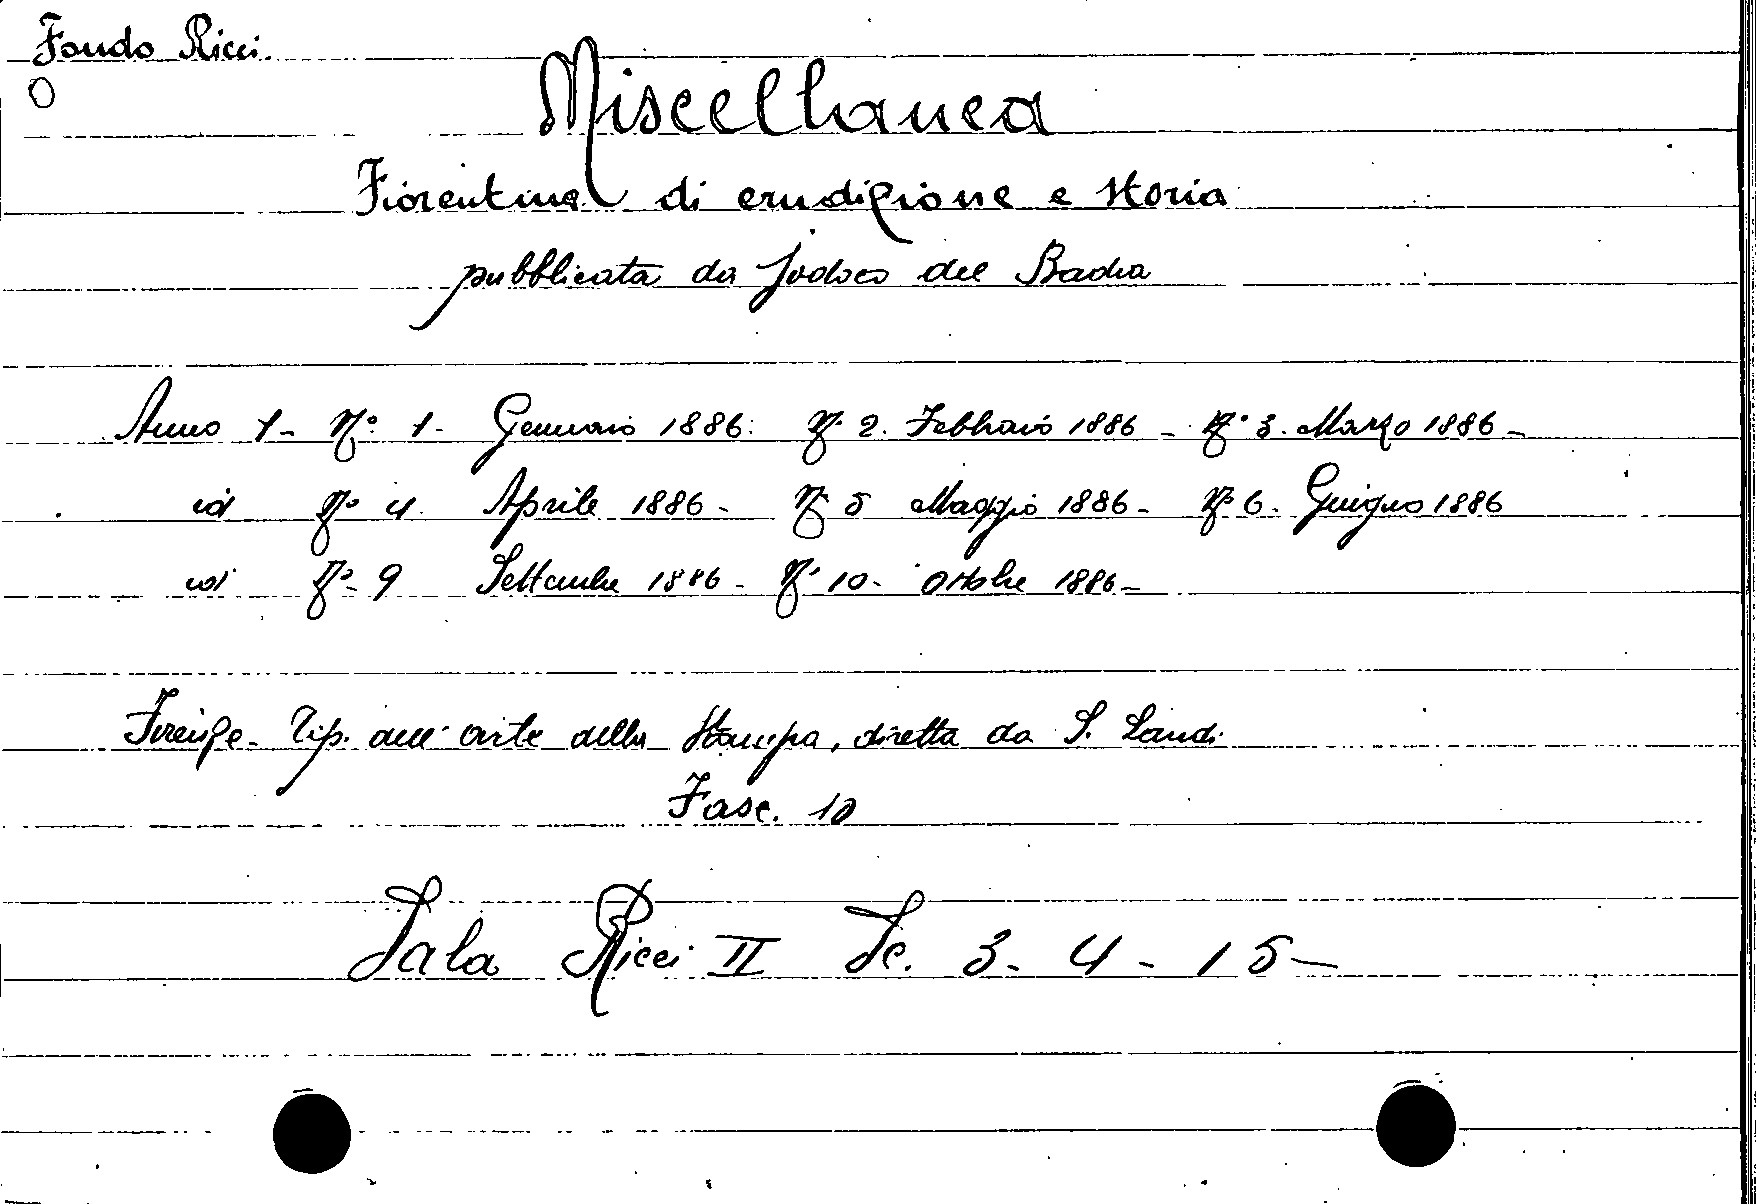 Fondo Ricci.
O
Miscellanea
Fiorentina di erudizione e storia
pubblicata da Jodoco del Badia
Anno 1- N° 1- Gennaio 1886. N° 2. Febbraio 1886 - N° 3. Marzo 1886 -
id N° 4. Aprile 1886 - N° 5 Maggio 1886 - N° 6. Giugno 1886
id N° 9 Settembre 1886 - N° 10 - Ottobre 1886 -
Firenze - Tip. dell'arte della Stampa, diretta da S. Landi.
Fasc. 10
Sala Ricci II Sc. 3 - 4 - 15 -